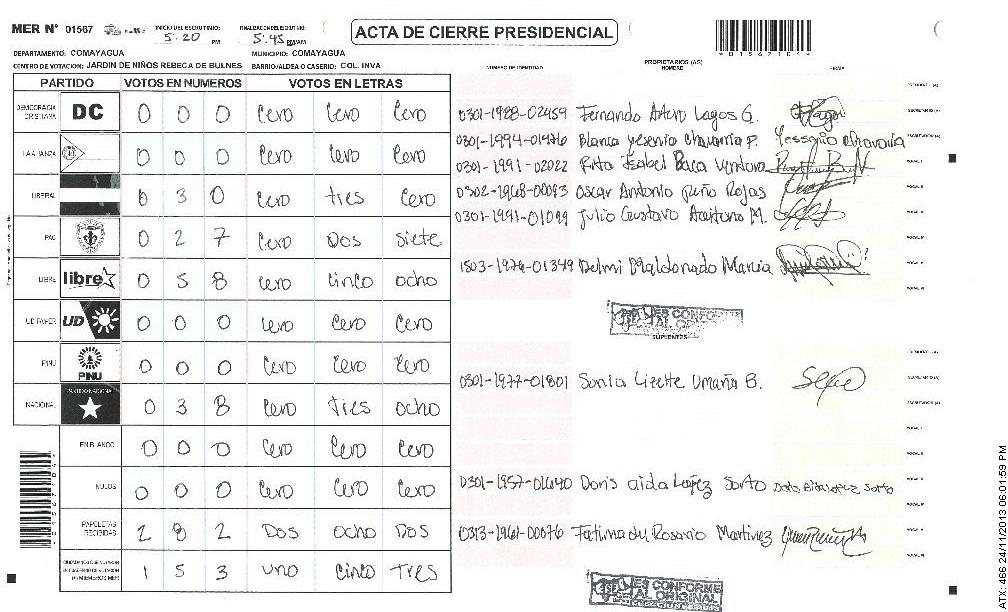 MER N° 01567
INICIO DEL ESCRUTINIO: 5:20 PM
FINALIZACION DEL ESCRUTINIO: 5:45 PM
ACTA DE CIERRE PRESIDENCIAL
DEPARTAMENTO: COMAYAGUA
MUNICIPIO: COMAYAGUA
CENTRO DE VOTACION: JARDIN DE NIÑOS REBECA DE BULNES
BARRIO/ALDEA O CASERIO: COL. INVA
PARTIDO VOTOS EN NUMEROS VOTOS EN LETRAS
NUMERO DE IDENTIDAD PROPIETARIOS (AS) NOMBRE FIRMA
DEMOCRACIA CRISTIANA DC 0 0 0 Cero Cero Cero
LA ALIANZA 0 0 0 Cero Cero Cero
LIBERAL 0 3 0 Cero tres Cero
PAC 0 2 7 Cero Dos siete
LIBRE libre 0 5 8 cero cinco ocho
UD FAPER UD 0 0 0 Cero Cero Cero
PINU PINU 0 0 0 Cero Cero Cero
NACIONAL PARTIDO NACIONAL 0 3 8 Cero Tres ocho
EN BLANCO 0 0 0 Cero Cero Cero
NULOS 0 0 0 Cero Cero Cero
PAPELETAS RECIBIDAS 2 8 2 Dos ocho Dos
1 5 3 uno Cinco Tres
0301-1988-02459 Fernando Arturo Lagos G.
0301-1994-01976 Blanca Yesenia Chavarria P. Yessenia Chavarria
0301-1991-02022 Rita Isabel Baca
0302-1968-00093 Oscar Antonio Peño Rojas
0301-1991-01099 Julio Gustavo M.
1503-1976-01349 Delmi Maldonado Mancia
ES CONFORME AL ORIGINAL
SUPLENTES
0301-1977-01801 Sonia Lizette Umaña B.
0301-1957-01640 Doris aida López Sorto
0313-1961-00076 Fatima del Rosario Martinez
ES CONFORME AL ORIGINAL
ATX: 466 24/11/2013 06:01:59 PM